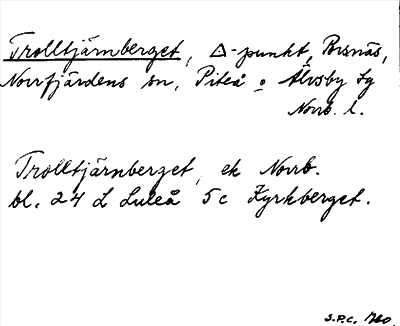 Trolltjärnberget, Δ-punkt, Borsnäs,
Norrfjärdens sn, Piteå o Älvsby tg
Norrb. l.
Trolltjärnberget, ek Norrb.
bl. 24 L Luleå 5c Kyrkberget.
S.P.C. 1760.